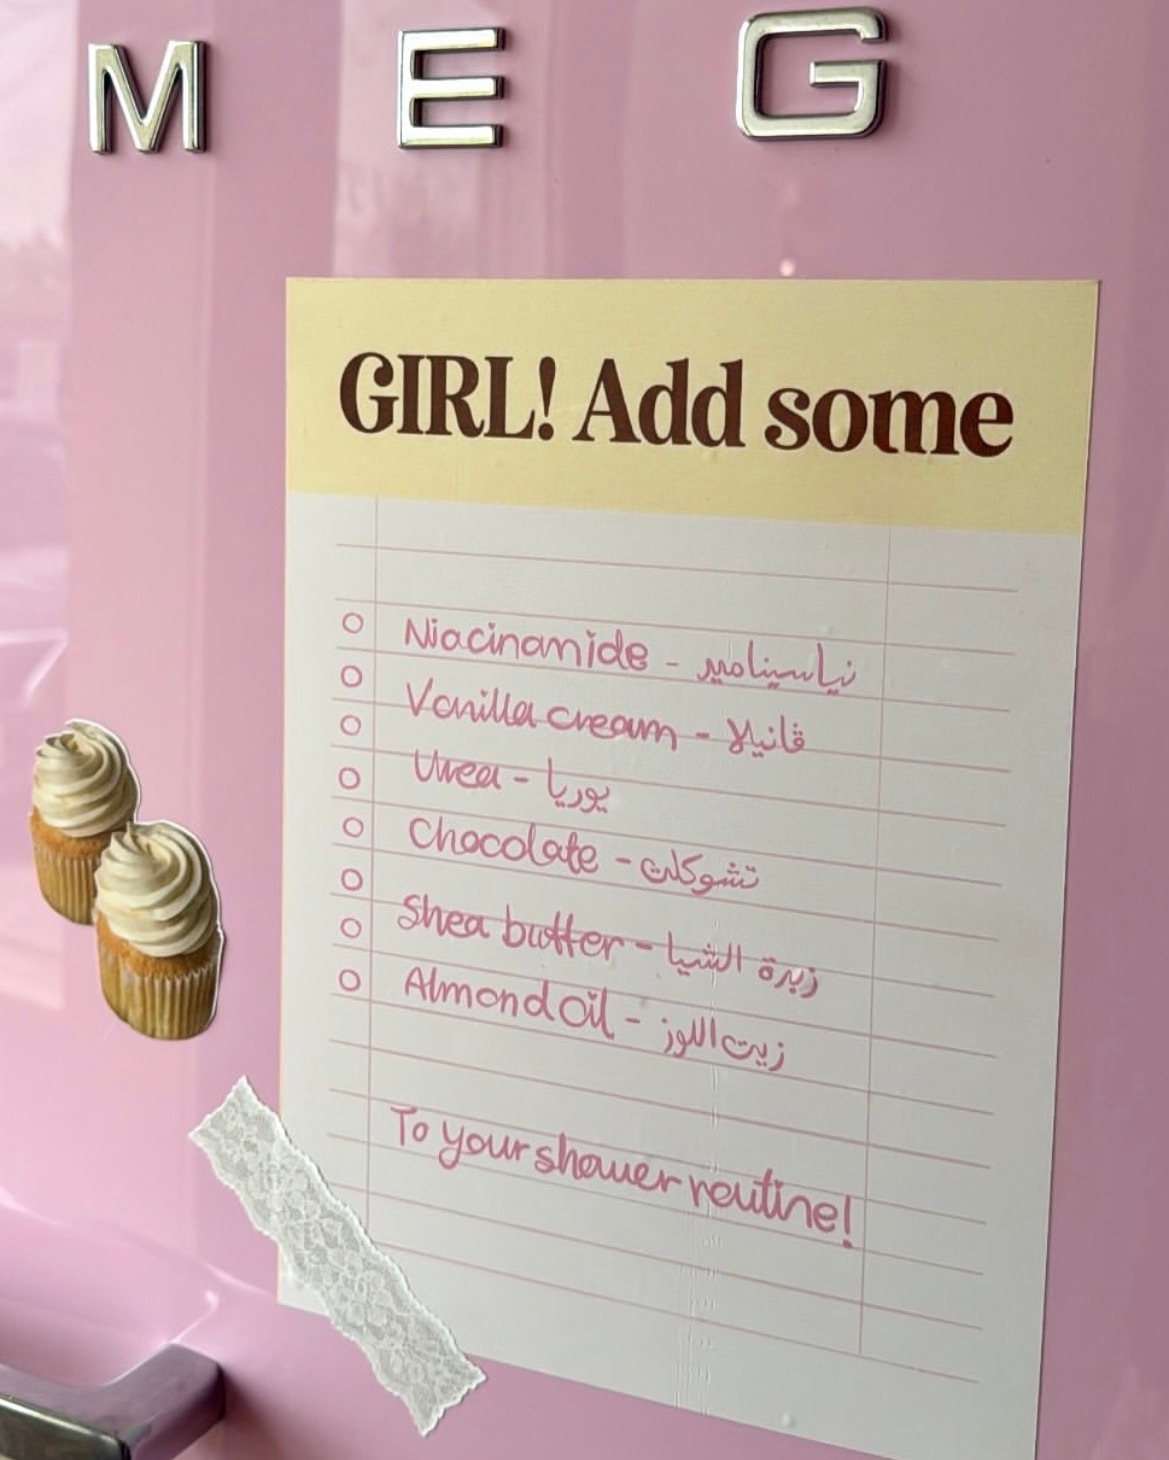 M E G
GIRL! Add some
Niacinamide - نياسيناميد
Vanilla cream - ڤانيلا
Urea - يوريا
Chocolate - تشوكلت
Shea butter - زبرة الشيا
Almond oil - زيت اللوز
To your shower routine!